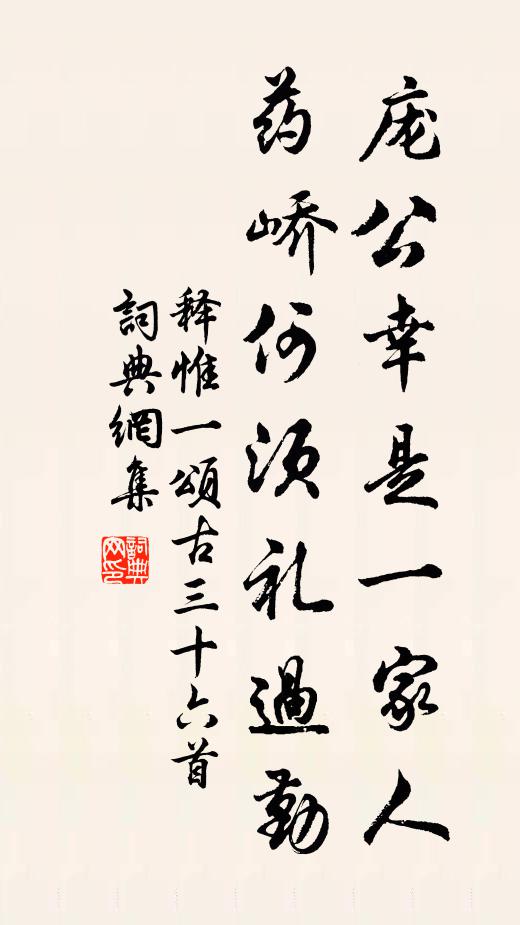 庞公幸是一家人
药峤何须礼过勤
释惟一颂古三十六首
詞典網集
詞典网印